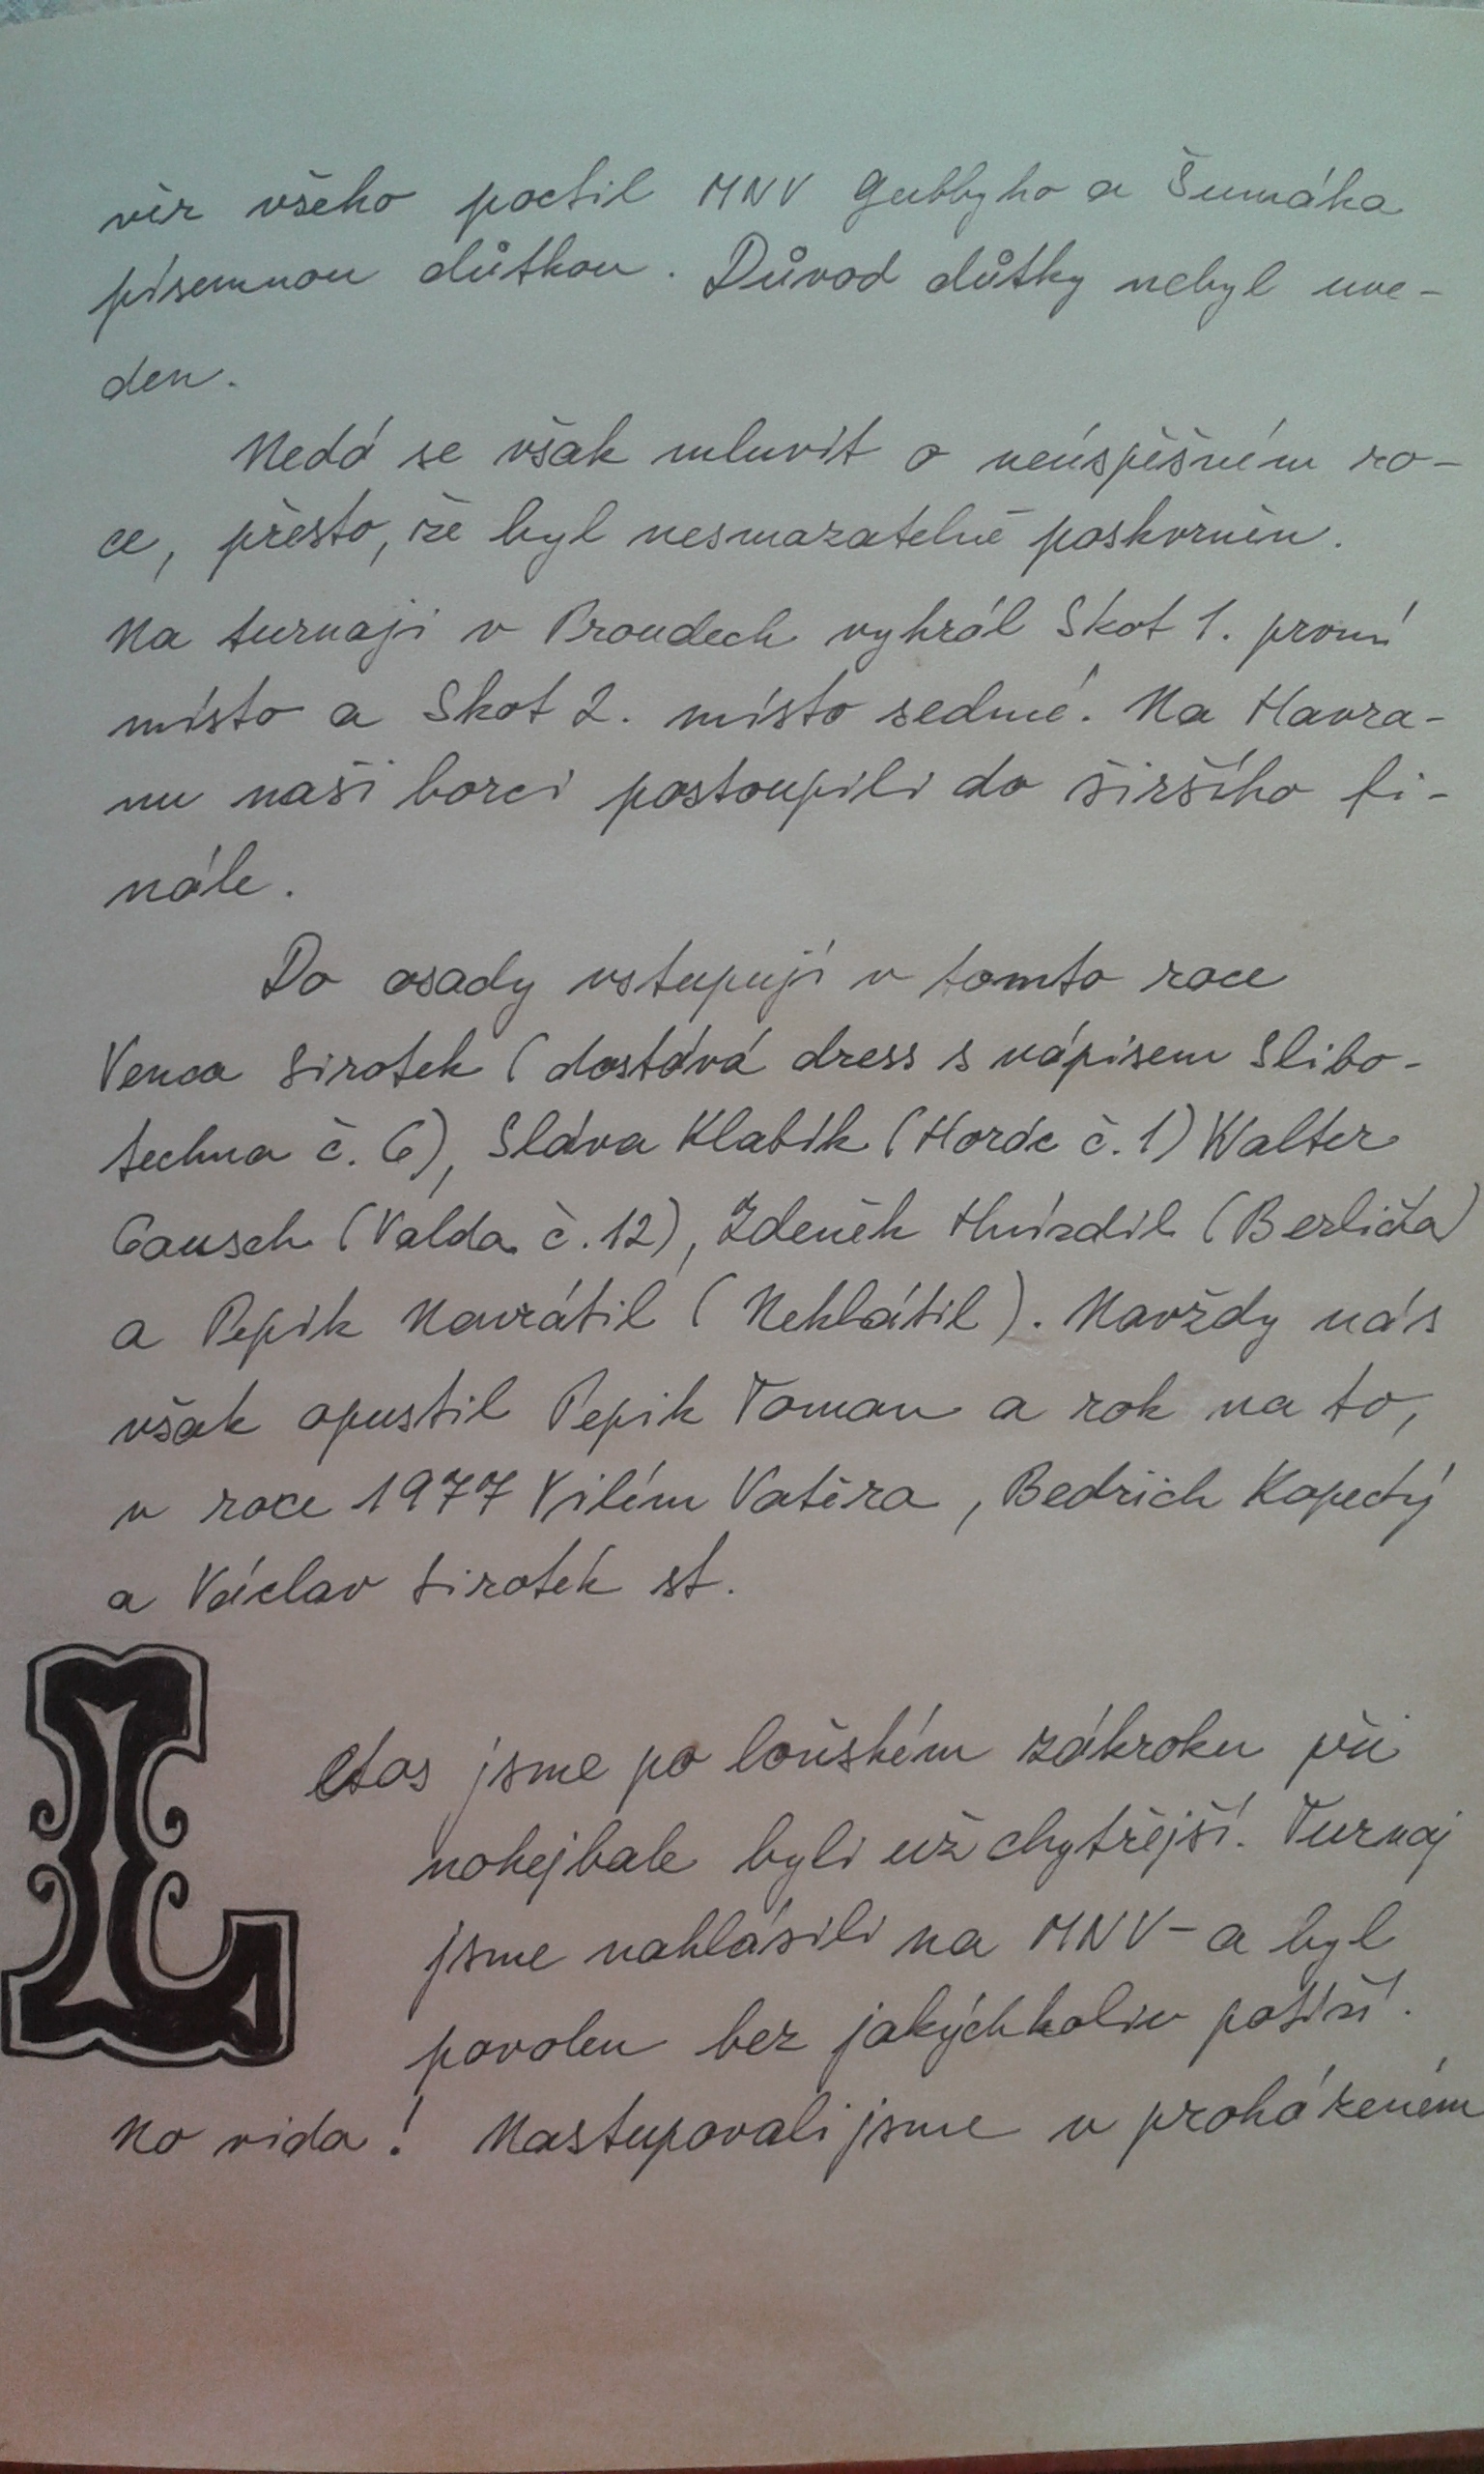 věr všeho poctil MNV Gubbyho a Šumáka
písemnou důtkou. Důvod důtky nebyl uve-
den.
Nedá se však mluvit o neúspěšném ro-
ce, přesto, že byl nesmazatelně poskvrněn.
Na turnaji v Proudech vyhrál Skot 1. první
místo a Skot 2. místo sedmé. Na Havra-
nu naši borci postoupili do širšího fi-
nále.
Do osady vstupují v tomto roce
Venca Sirotek (dostává dress s nápisem Slibo-
techna č. 6), Sláva Klabík (Horác č. 1) Walter
Gausch (Valda č. 12), Zdeněk Hvízdil (Berlička)
a Pepík Navrátil (Neklátil). Navždy nás
však opustil Pepík Toman a rok na to,
v roce 1977 Vilém Vatěra, Bedřich Kopecký
a Václav Sirotek st.
Letos jsme po loňském zákroku při
nohejbale byli už chytřejší. Turnaj
jsme nahlásili na MNV - a byl
povolen bez jakýchkoliv potíží.
No vida! Nastupovali jsme v proházeném